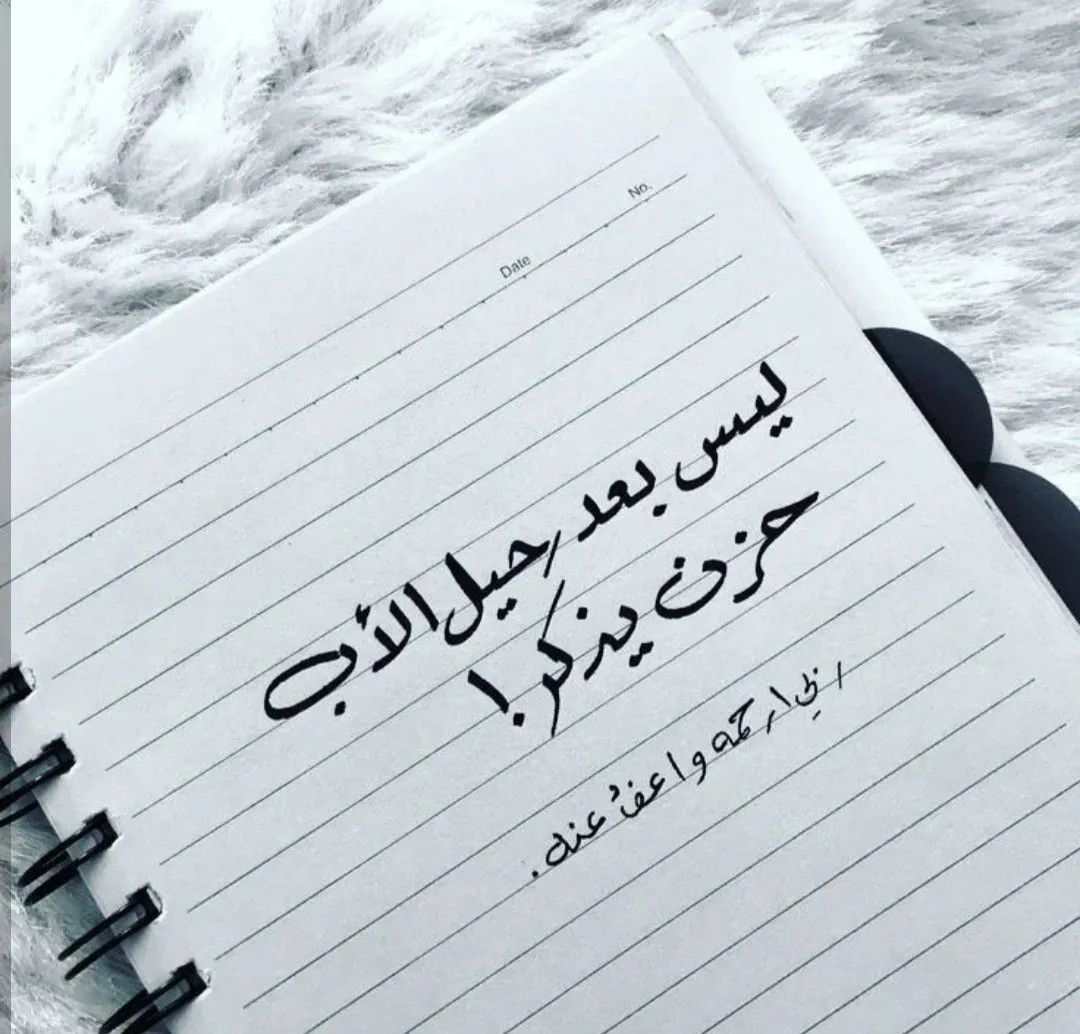 No.
Date
ليس بعد رحيل الأب
حزن يذكر!
ربي ارحمه واعفُ عنه.